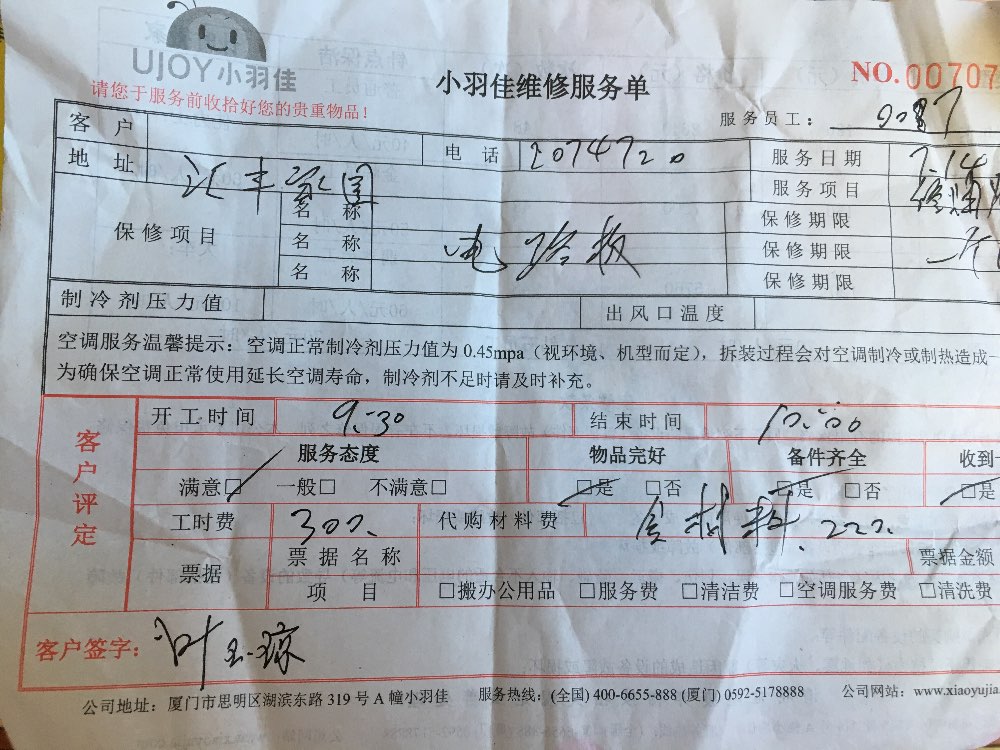 UJOY小羽佳
请您于服务前收拾好您的贵重物品！
小羽佳维修服务单
NO. 00707
服务员工：
客户 电话 2074720 服务日期 7.14
地址 汇丰家园 服务项目
保修项目 名称 保修期限
名称 电路板 保修期限
名称 保修期限
制冷剂压力值 出风口温度
空调服务温馨提示：空调正常制冷剂压力值为0.45mpa（视环境、机型而定），拆装过程会对空调制冷或制热造成一
为确保空调正常使用延长空调寿命，制冷剂不足时请及时补充。
客户评定
开工时间 9:30 结束时间 10:00
服务态度 物品完好 备件齐全 收到
满意□ 一般□ 不满意□ □是 □否 □是 □否 □是
工时费 300 代购材料费 含材料 220
票据 票据名称 票据金额
项目 □搬办公用品 □服务费 □清洁费 □空调服务费 □清洗费
客户签字： 叶玉琼
公司地址：厦门市思明区湖滨东路319号A幢小羽佳 服务热线：(全国) 400-6655-888 (厦门) 0592-5178888 公司网站：www.xiaoyujia